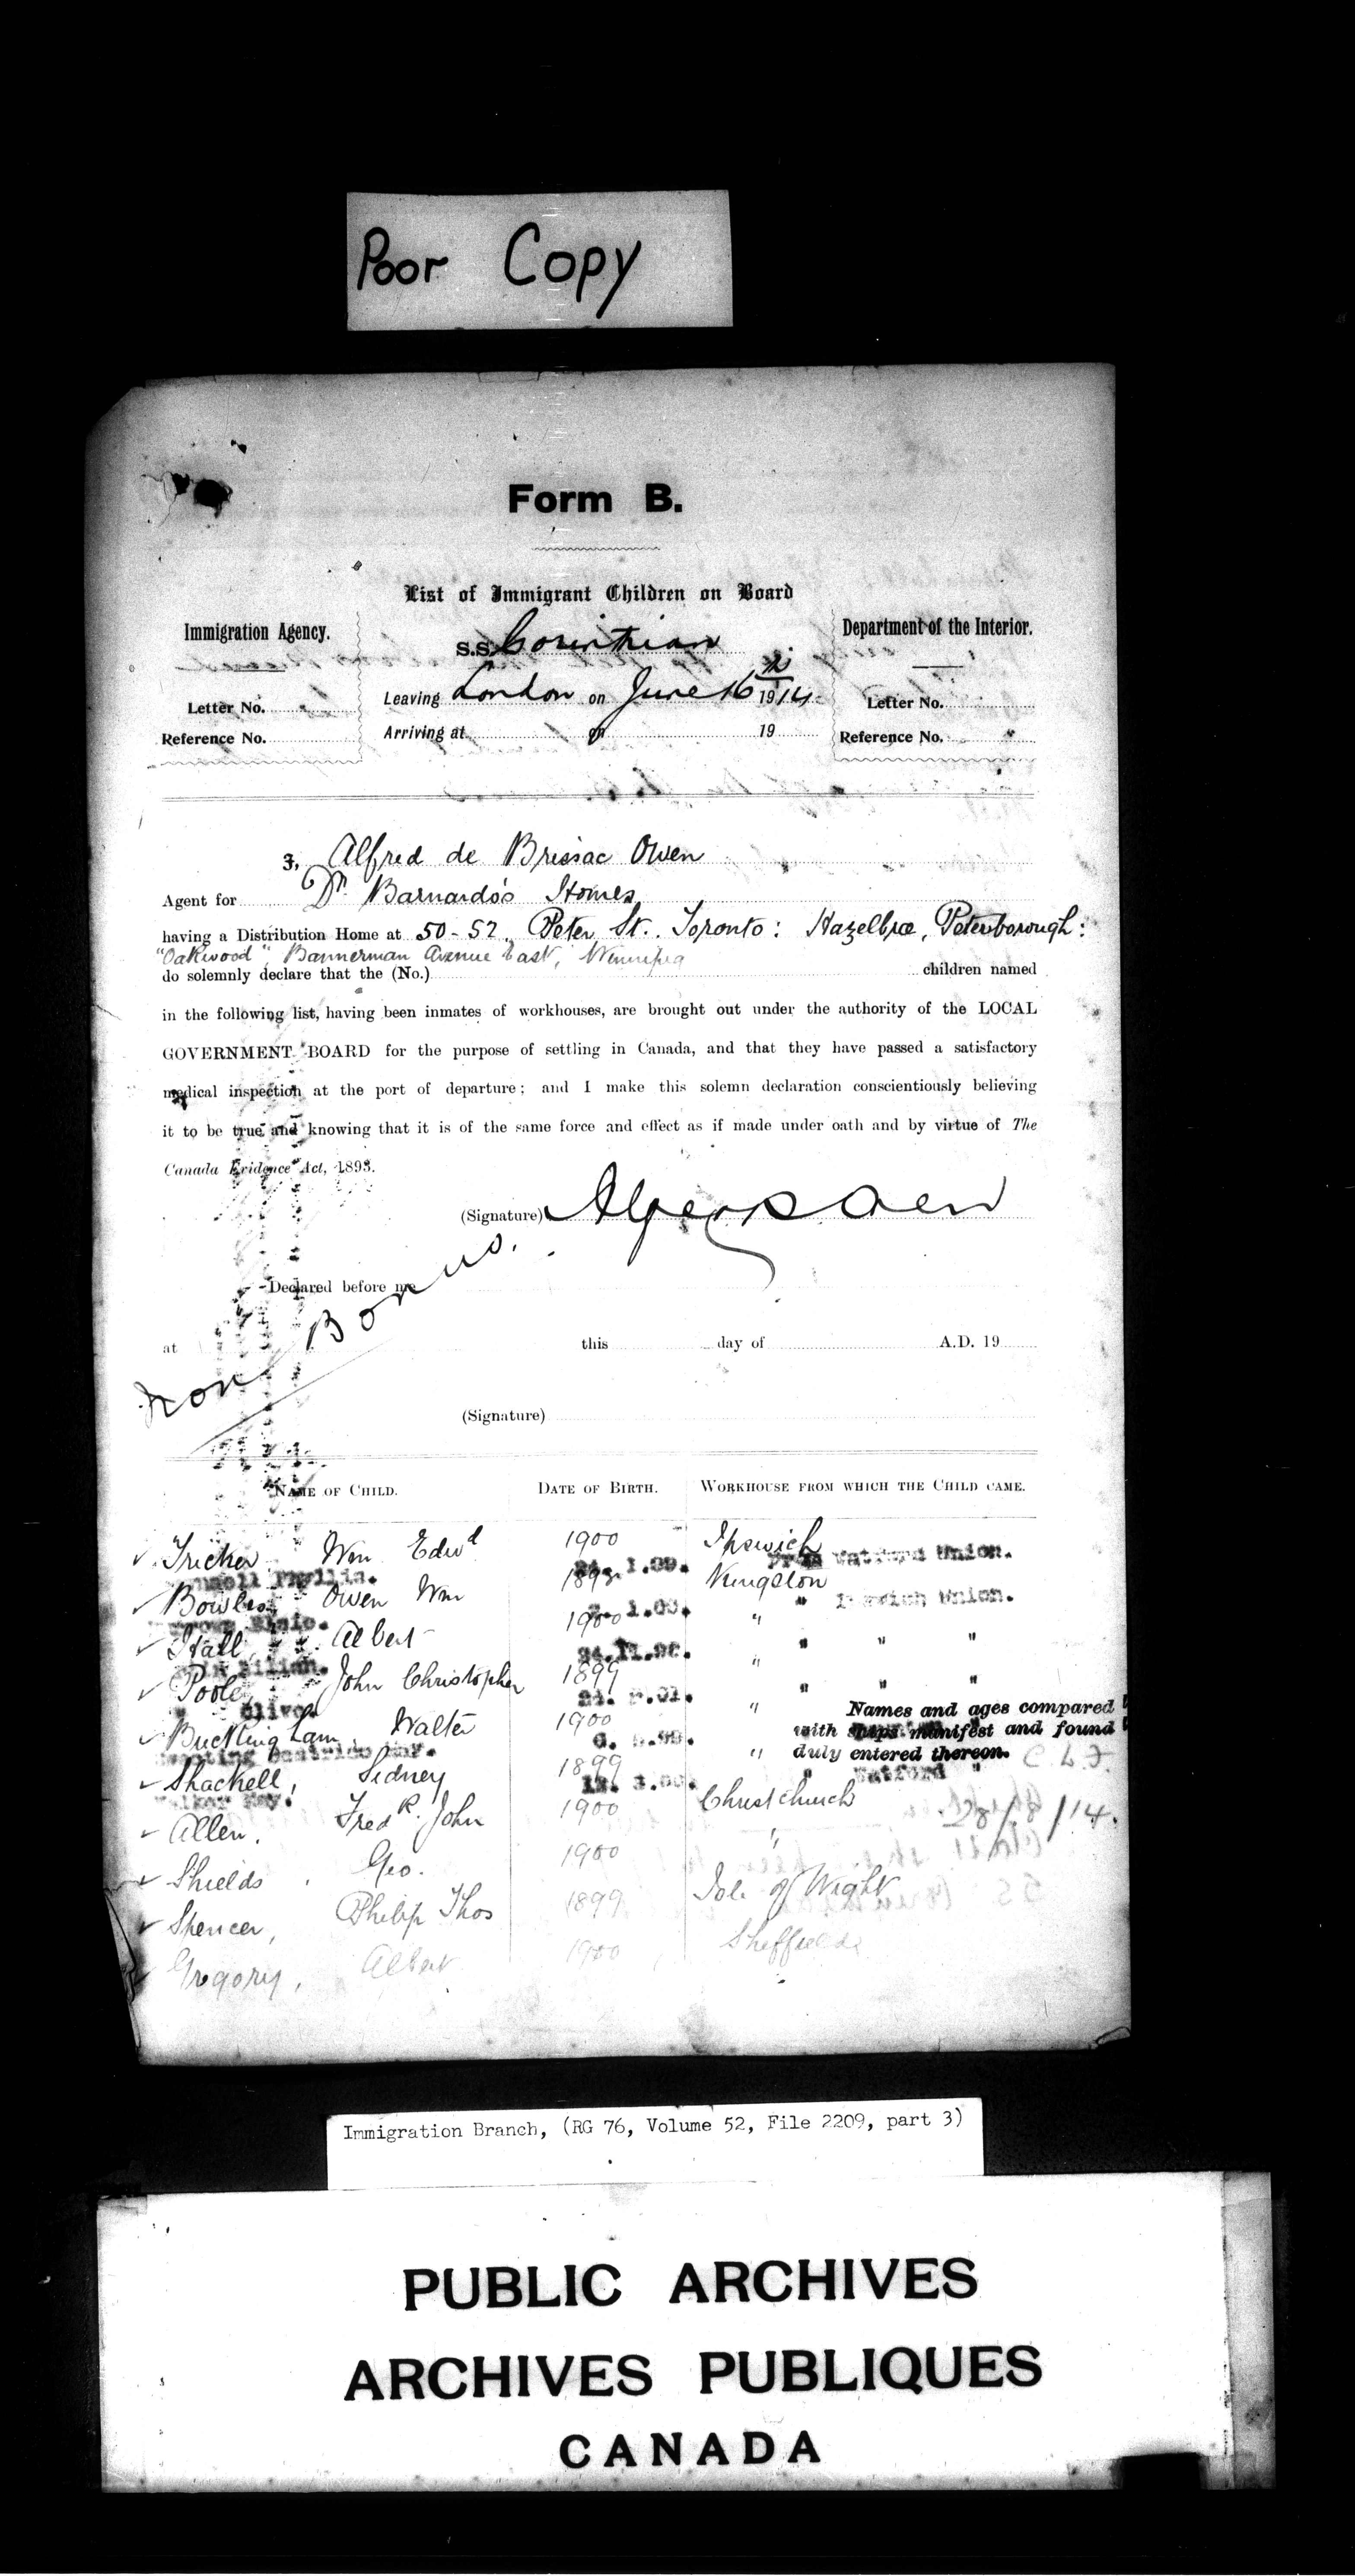 Poor Copy
Form B.
List of Immigrant Children on Board
Immigration Agency.
S.S. Corinthian
Department of the Interior.
Letter No.
Leaving London on June 16th 1914
Letter No.
Reference No.
Arriving at on 19
Reference No.
I, Alfred de Brissac Owen
Agent for Dr. Barnardo's Homes
having a Distribution Home at 50-52, Peter St. Toronto: Hazelbrae, Peterborough:
"Oakwood", Bannerman Avenue East, Winnipeg
do solemnly declare that the (No.) children named
in the following list, having been inmates of workhouses, are brought out under the authority of the LOCAL
GOVERNMENT BOARD for the purpose of settling in Canada, and that they have passed a satisfactory
medical inspection at the port of departure; and I make this solemn declaration conscientiously believing
it to be true and knowing that it is of the same force and effect as if made under oath and by virtue of The
Canada Evidence Act, 1893.
(Signature) Owen
Declared before me
Non Bonus.
at this day of A.D. 19
(Signature)
NAME OF CHILD. DATE OF BIRTH. WORKHOUSE FROM WHICH THE CHILD CAME.
Tricker Wm Edwd 1900 Ipswich
Phyllis. 1.09. From Watford Union.
Bowles Owen Wm Kingston
Union.
Hall Albert 1900 "
24.11. " " "
Poole John Christopher 1899 "
Olive " " "
Buckling Walter 1900 "
Names and ages compared
with ships manifest and found
duly entered thereon.
Shackell, Sidney 1899 "
May. Watford "
Allen, Fredk. John 1900 Christchurch
28/8/14.
Shields Geo. 1900 "
Spencer, Philip Thos 1899 Isle of Wight
Gregory, Albert 1900 Sheffield
Immigration Branch, (RG 76, Volume 52, File 2209, part 3)
PUBLIC ARCHIVES
ARCHIVES PUBLIQUES
CANADA